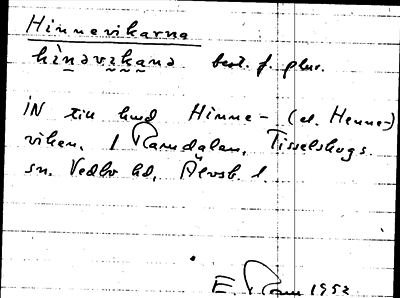 Hinnevikarna
hìn̲əvi̬k̬a̬nə best. f. plur.
IN till hmd Hinne- (el. Henne-)
viken, i Ramdalen, Tisselskogs
sn. Vedbo hd, Älvsb. l.
E. 1952